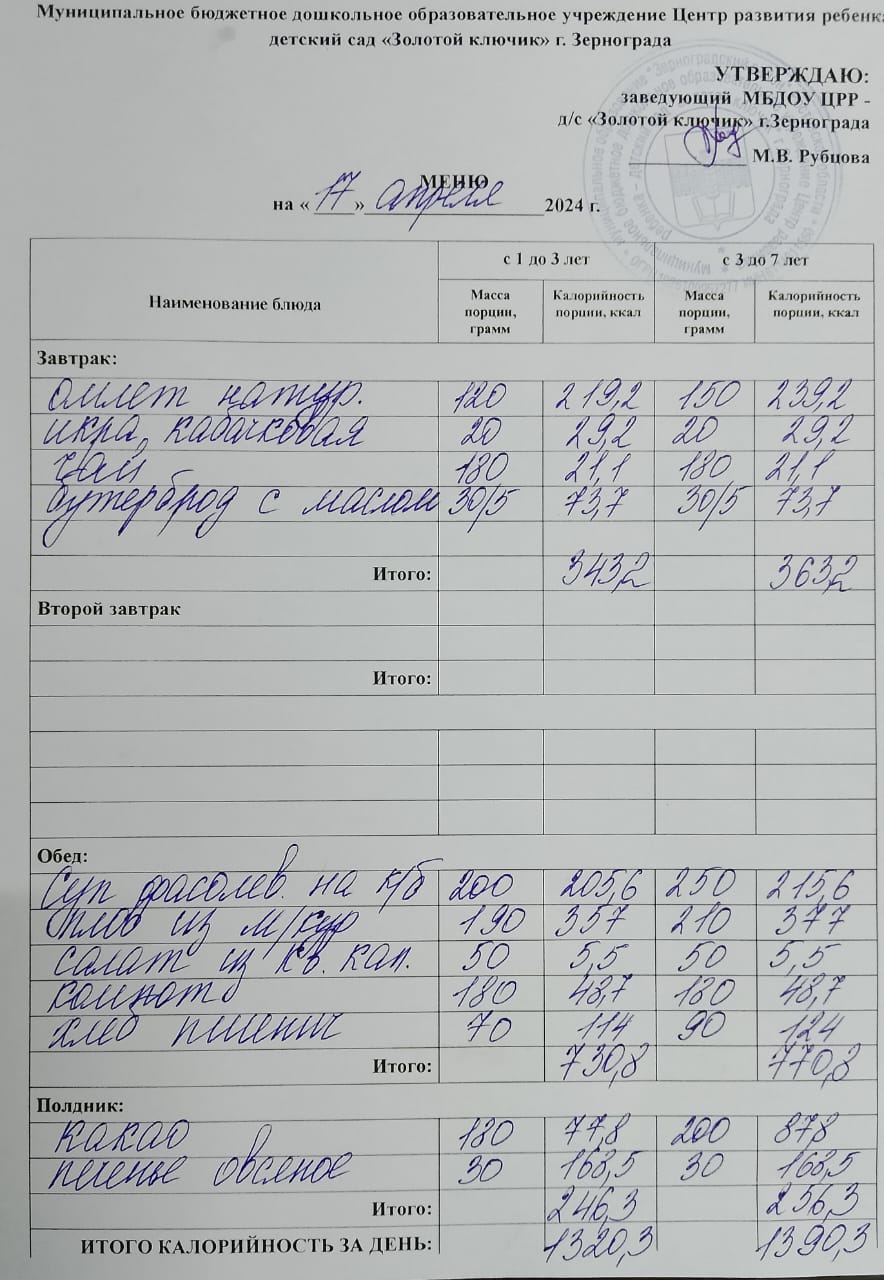 Муниципальное бюджетное дошкольное образовательное учреждение Центр развития ребенка
детский сад «Золотой ключик» г. Зернограда
УТВЕРЖДАЮ:
заведующий МБДОУ ЦРР -
д/с «Золотой ключик» г.Зернограда
М.В. Рубцова
МЕНЮ
на «17» апреля 2024 г.
Наименование блюда с 1 до 3 лет с 3 до 7 лет
Масса порции, грамм Калорийность порции, ккал Масса порции, грамм Калорийность порции, ккал
Завтрак:
омлет натур. 120 219,2 150 239,2
икра кабачковая 20 29,2 20 29,2
чай 180 21,1 180 21,1
бутерброд с маслом 30/5 73,7 30/5 73,7
Итого: 343,2 363,2
Второй завтрак
Итого:
Обед:
Суп фасолев. на к/б 200 205,6 250 215,6
плов из м/кур 190 357 210 377
салат из кв. кап. 50 5,5 50 5,5
компот 180 48,7 180 48,7
хлеб пшенич 70 114 90 124
Итого: 730,8 770,8
Полдник:
какао 180 77,8 200 87,8
печенье овсяное 30 168,5 30 168,5
Итого: 246,3 256,3
ИТОГО КАЛОРИЙНОСТЬ ЗА ДЕНЬ: 1320,3 1390,3